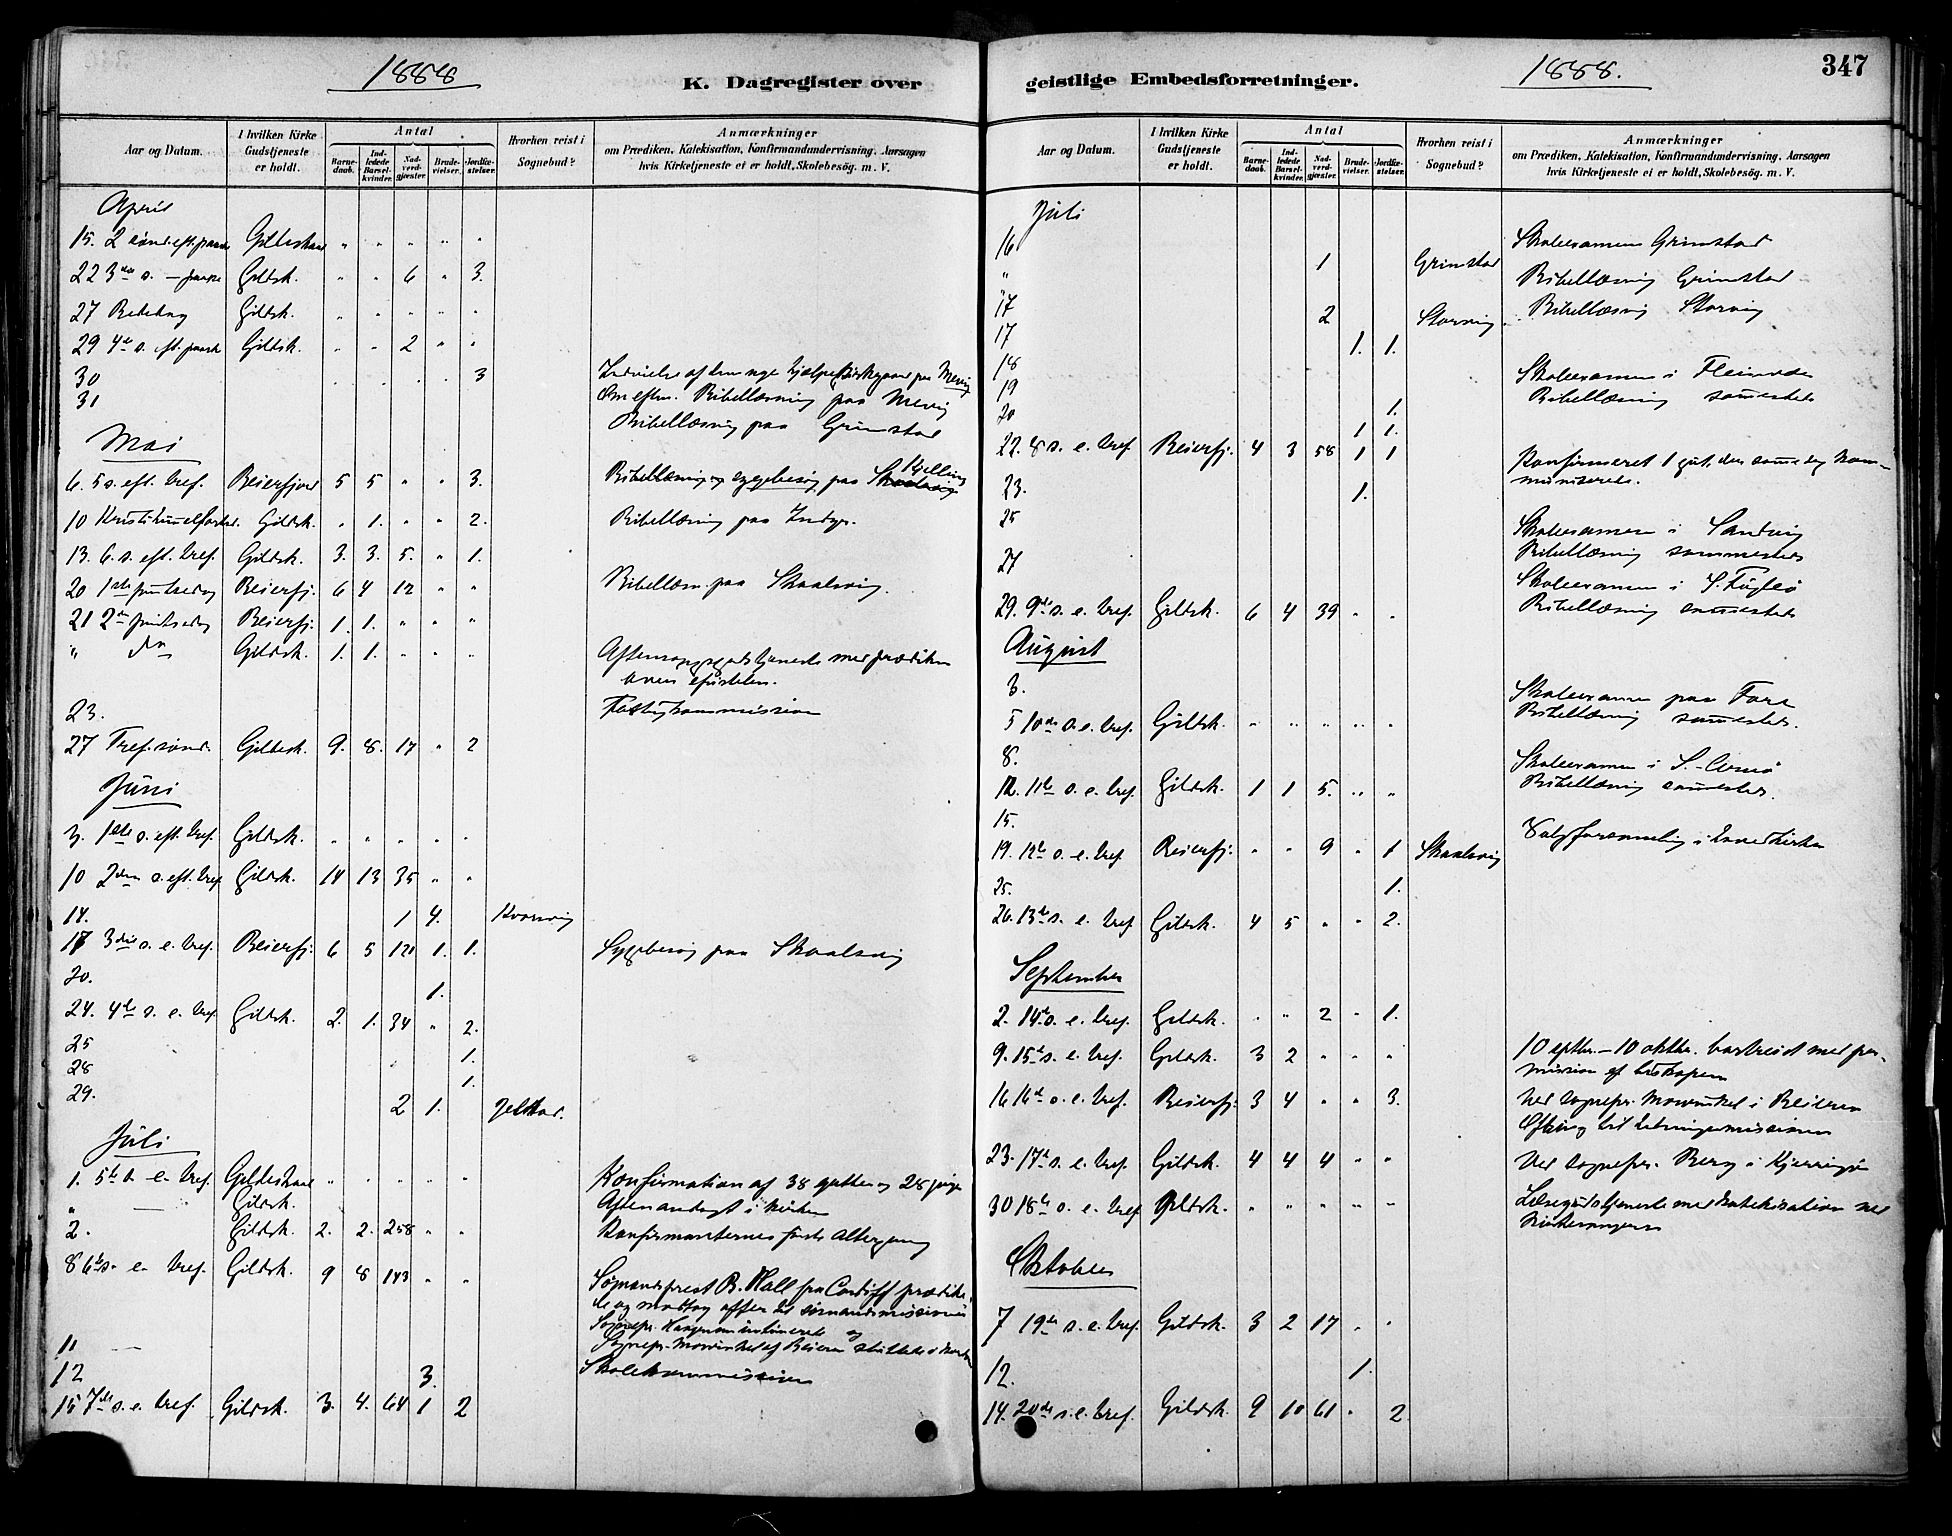 1888
K. Dagregister over
Aar og Datum.
I hvilken Kirke Gudstjeneste er holdt.
Antal
Barnedaab.
Indledede Barselkvinder.
Nadverdgjæster.
Brudevielser.
Jordfæstelser.
Hvorhen reist i Sognebud?
Anmærkninger
om Prædiken, Katekisation, Konfirmandundervisning, Aarsagen
hvis Kirketjeneste ei er holdt, Skolebesög. m. V.
April
15. 2 sönd. eft. paaske Gildeskaal " " " " "
22 3die s. — paaske Gildsk. " " 6 " 3.
27 Bededag Gildsk. " " " " "
29 4de s. eft. paask Gildsk. " " 2 " "
30 " " " " 3 Indvielse af den nye hjælpekirkegaard paa Mevig
31 Bibellæsning paa Mevig
Bibellæsning paa Grimstad
Mai
6. 5 s. eft. tref. Beierfjord 5 5 " " 3. Bibellæsning og sygebesøg paa Kjelling
10 Kristi himmelfartsd. Gildsk. " 1. " " 2. Bibellæsning paa Indyr.
13. 6. s. eft. tref. Gildsk. 3. 3. 5. " 1.
20 1ste pintsedag Beierfj. 6 4 12 " " Bibellæsn. paa Skaalsvig.
21 2den pintsedag Beierfj. 1. 1. " " "
" do Gildsk. 1. 1. " " " Aftensangsgudstjeneste med prædiken
over epistelen.
23. Fattigkommission
27 Tref. sönd. Gildesk. 9. 8. 17 " 2
Juni
3. 1ste s. eft. tref. Gildsk. " " " " "
10 2den s. eft. tref Gildsk. 14 13 35 " "
14. 1 4. Kvarsvig
17 3die s. e. tref. Beierfj. 6 5 121 1. 1. Sygebesøg paa Skaalsvig
20. 1.
24. 4de s. e. tref. Gildsk. 2. 1. 34 " 2.
25 1.
28 1.
29. 2 1.
Juli
1. 5te s. e. tref. Gildeskaal " " " " " Konfirmation af 38 gutter og 28 piger
" — Gildsk. Aftenandagt i kirken
2. Gildsk. 2. 2. 258 " " Konfirmanternes første altergang
8 6te s. e. tref. Gildsk. 9 8 143 " " Sømandsprest B. Hall fra Cardiff prædike-
de og modtog offer til sømandsmissionen
Sognepr. Haagensen intimerede og
Sognepr. Mowinkel af Beieren sluttede i kordør
11 —
12 3. Skolekommission
15 7de s. e. tref. Gildsk. 3. 4. 64 1 2
geistlige Embedsforretninger.
1888.
347
Aar og Datum.
I hvilken Kirke Gudstjeneste er holdt.
Antal
Barnedaab.
Indledede Barselkvinder.
Nadverdgjæster.
Brudevielser.
Jordfæstelser.
Hvorhen reist i Sognebud?
Anmærkninger
om Prædiken, Katekisation, Konfirmandundervisning, Aarsagen
hvis Kirketjeneste ei er holdt, Skolebesög. m. V.
Juli
16 Skoleexamen Grimstad
" 1 Grimstad Bibellæsning Grimstad
17 2 Storvig Bibellæsning Storvig
17 1. 1.
18 Skoleexamen i Fleinvær
19 Bibellæsning sammesteds
20 1.
1 1.
22. 8 s. e. tref. Beierfj. 4 3 58 1 1 Konfirmeret 1 gut, der samme dag kom-
municerede.
23. 1.
25 Skoleexamen i Sandvig
Bibellæsning sammesteds
27 Skoleexamen i S. Fuglø
29. 9de s. e. tref. Gildsk. 6 4 39 " " Bibellæsning sammesteds
August
3. Skoleexamen paa Fore
Bibellæsning sammesteds.
5 10de s. e. tref. Gildsk. " " " " "
8. Skoleexamen i S.-Arnø
Bibellæsning sammesteds.
12. 11te s. e. tref. Gildsk. 1 1 5. " "
15. Valgforsamling i hovedkirken
19. 12te s. e. tref Beierfj. " " 9 " 1 Skaalsvig
25. 1.
26. 13de s. e. tref Gildsk. 4 5 " " 2.
September
2. 14de s. e. tref. Gildsk. " " 2 " 1.
9. 15de s. e. tref. Gildsk. 3 2 " " " 10 septbr. – 10 oktbr. bortreist med per-
mission af biskopen
16 16de s. e. tref. Beierfj. 3 4 " " 3. Ved sognepr. Mowinkel i Beieren
Ofring til hedningemissionen
23. 17de s. e. tref. Gildsk. 4 4 4 " " Ved sognepr. Berg i Kjerringø
30 18de s. e. tref Gildsk. " " " " " Læsegudstjeneste med katekisation ved
kirkesangeren
Oktober
7 19de s. e. tref. Gildsk. 3 2 17 " "
12. 1.
14. 20de s. e. tref. Gildsk. 9 10 61 " 2